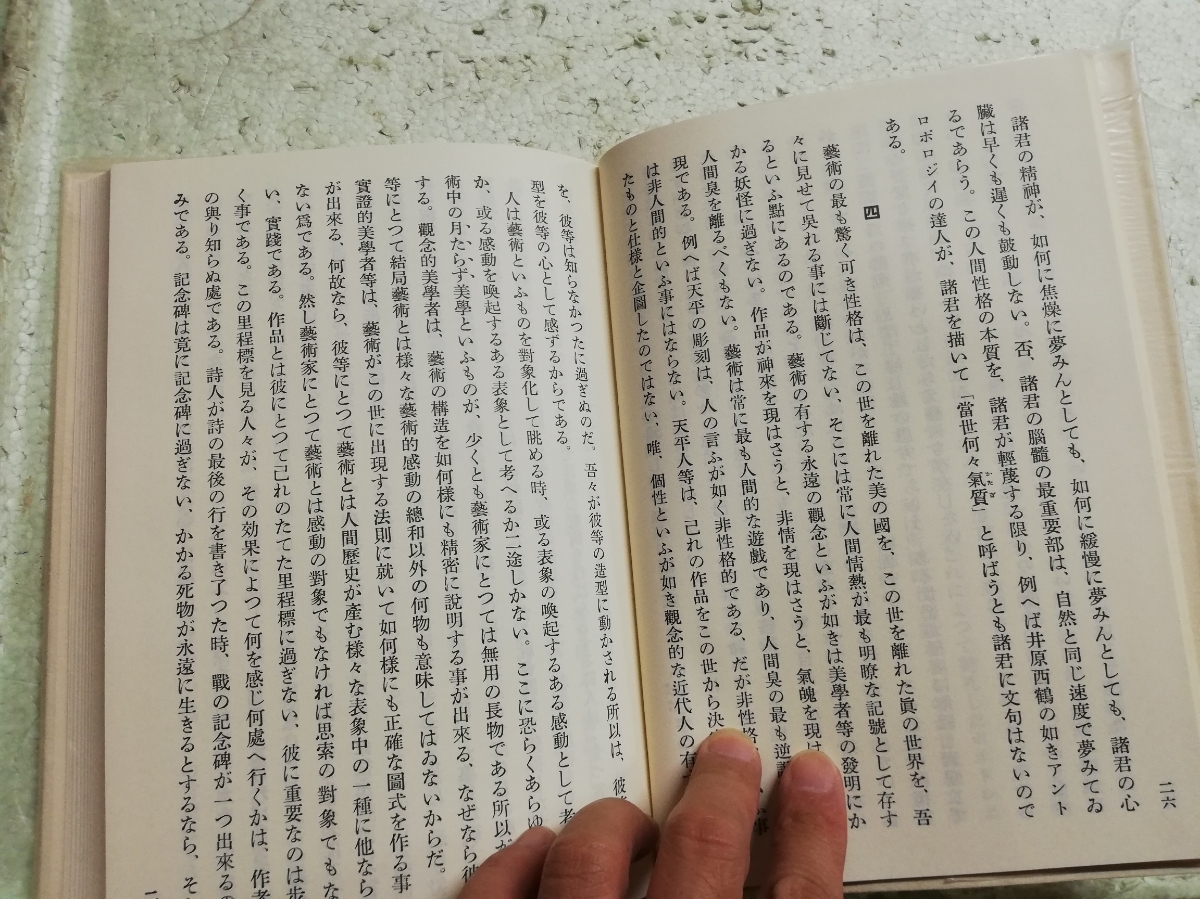 二六
諸君の精神が、如何に焦燥に夢みんとしても、如何に緩慢に夢みんとしても、諸君の心
臟は早くも遲くも鼓動しない。否、諸君の腦髓の最重要部は、自然と同じ速度で夢みてゐ
るであらう。この人間性格の本質を、諸君が輕蔑する限り、例へば井原西鶴の如きアント
ロポロジイの達人が、諸君を描いて「當世何々氣質」と呼ばうとも諸君に文句はないので
かたぎ
ある。
四
藝術の最も驚く可き性格は、この世を離れた美の國を、この世を離れた眞の世界を、吾
々に見せて吳れる事には斷じてない、そこには常に人間情熱が最も明瞭な記號として存す
るといふ點にあるのである。藝術の有する永遠の觀念といふが如きは美學者等の發明にか
かる妖怪に過ぎない。作品が神來を現はさうと、非情を現はさうと、氣魄を現は
人間臭を離るべくもない。藝術は常に最も人間的な遊戲であり、人間臭の最も逆說
現である。例へば天平の彫刻は、人の言ふが如く非性格的である、だが非性格
は非人間的といふ事にはならない。天平人等は、己れの作品をこの世から決
たものと仕樣と企圖したのではない、唯、個性といふが如き觀念的な近代人の有
を、彼等は知らなかつたに過ぎぬのだ。吾々が彼等の造型に動かされる所以は、彼
型を彼等の心として感ずるからである。
人は藝術といふものを對象化して眺める時、或る表象の喚起するある感動として考
か、或る感動を喚起するある表象として考へるか二途しかない。ここに恐らくあらゆ
術中の月たらず、美學といふものが、少くとも藝術家にとつては無用の長物である所以が
等にとつて結局藝術とは樣々な藝術的感動の總和以外の何物も意味してはゐないからだ。
する。觀念的美學者は、藝術の構造を如何樣にも精密に說明する事が出來る、なぜなら彼
實證的美學者等は、藝術がこの世に出現する法則に就いて如何樣にも正確な圖式を作る事
が出來る、何故なら、彼等にとつて藝術とは人間歷史が產む樣々な表象中の一種に他なら
ない爲である。然し藝術家にとつて藝術とは感動の對象でもなければ思索の對象でもな
い、實踐である。作品とは彼にとつて己れのたてた里程標に過ぎない、彼に重要なのは步
く事である。この里程標を見る人々が、その効果によつて何を感じ何處へ行くかは、作者
の與り知らぬ處である。詩人が詩の最後の行を書き了つた時、戰の記念碑が一つ出來るの
みである。記念碑は竟に記念碑に過ぎない、かかる死物が永遠に生きるとするなら、そ